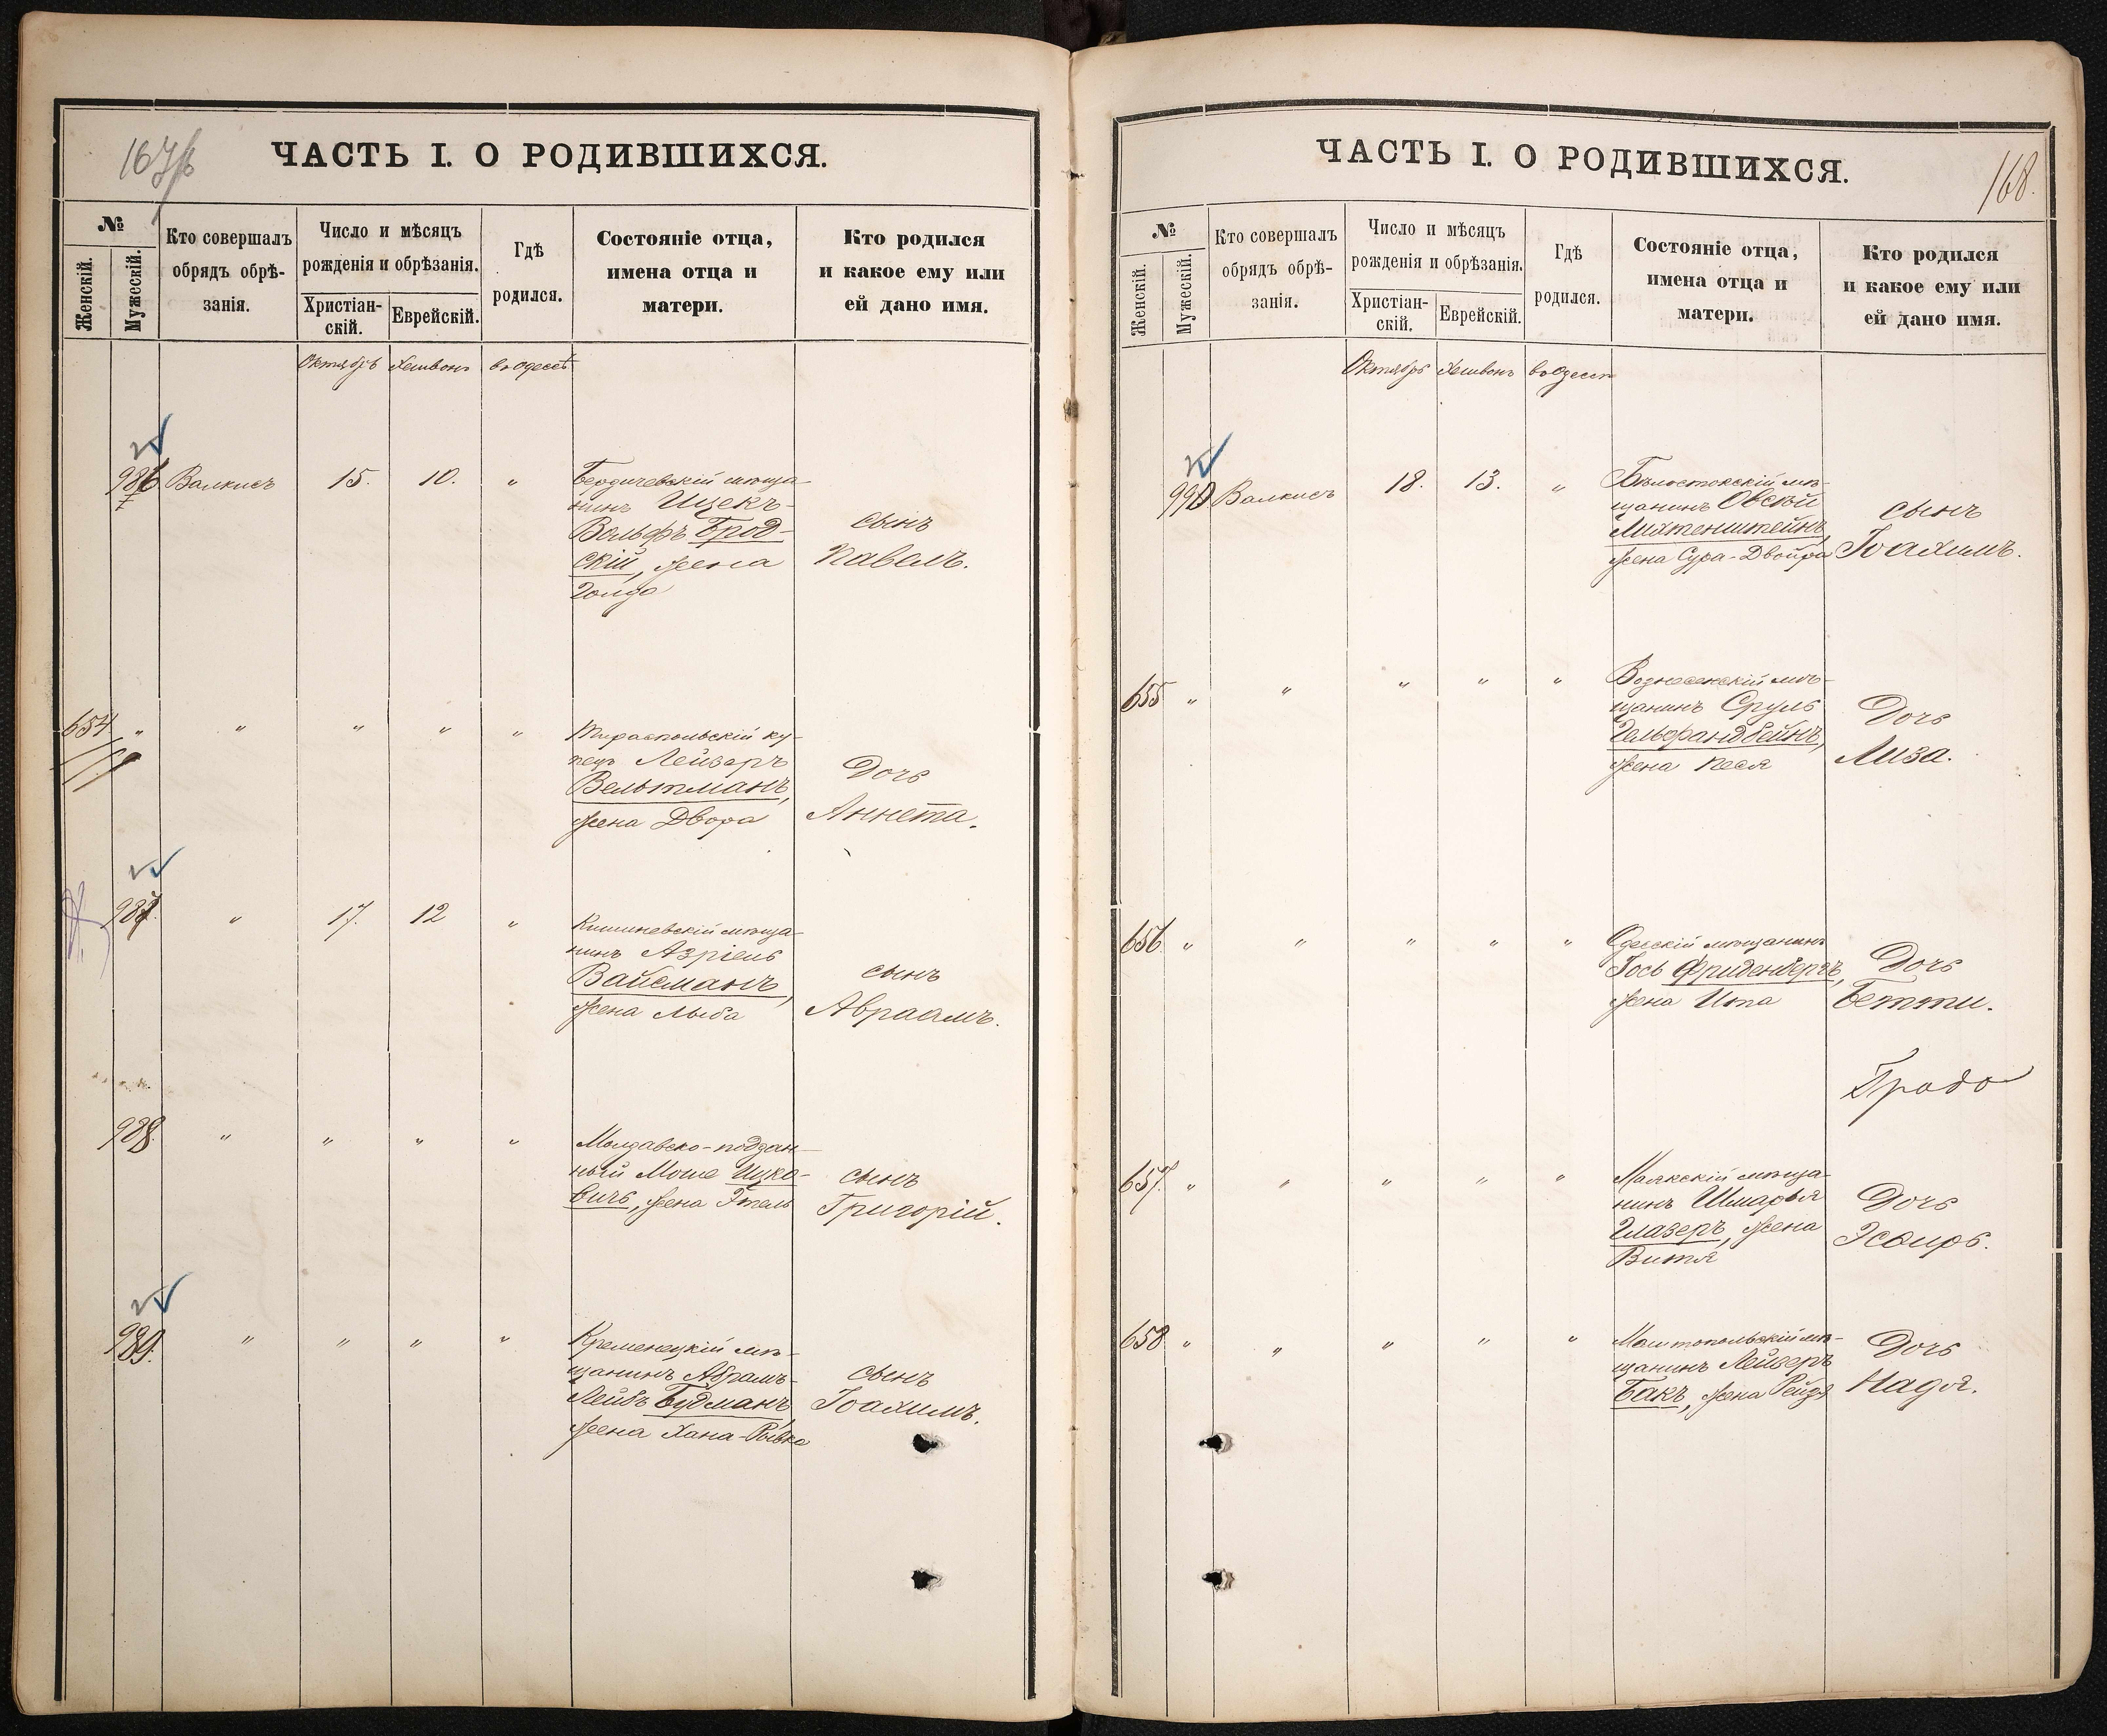 167/б
ЧАСТЬ I. О РОДИВШИХСЯ.
№
Женскій.
Мужескій.
Кто совершалъ
обрядъ обрѣ-
занія.
Число и мѣсяцъ
рожденія и обрѣзанія.
Христіан-
скій.
Еврейскій.
Гдѣ
родился.
Состояніе отца,
имена отца и
матери.
Кто родился
и какое ему или
ей дано имя.
Октябрь Хешвонъ въ Одессѣ
986 Валкисъ 15. 10. „ Бердичевскій мѣща-
нинъ Ицекъ-
Вольфъ Брод-
скій, жена
Голда
сынъ
Павелъ.
654 „ „ „ „ „ Тираспольскій ку-
пецъ Лейзеръ
Вельтманъ,
жена Двора
Дочь
Аннета.
987. „ 17. 12 „ Кишиневскій мѣща-
нинъ Азріель
Вайсманъ,
жена Лыба
сынъ
Авраамъ.
988. „ „ „ „ Молдавско-поддан-
ный Моше Ицко-
вичъ, жена Этель
сынъ
Григорій.
989. „ „ „ „ Кременецкій мѣ-
щанинъ Абрамъ-
Лейбъ Будманъ,
жена Хана-Рывка
сынъ
Іоахимъ.
ЧАСТЬ I. О РОДИВШИХСЯ.
168.
№
Женскій.
Мужескій.
Кто совершалъ
обрядъ обрѣ-
занія.
Число и мѣсяцъ
рожденія и обрѣзанія.
Христіан-
скій.
Еврейскій.
Гдѣ
родился.
Состояніе отца,
имена отца и
матери.
Кто родился
и какое ему или
ей дано имя.
Октябрь Хешвонъ въ Одессѣ
990 Валкисъ 18. 13. „ Бѣлостокскій мѣ-
щанинъ Овсѣй
Лихтенштейнъ,
жена Сура-Двойра
сынъ
Іоахимъ.
655 „ „ „ „ „ Вознесенскій мѣ-
щанинъ Сруль
Гельфандбейнъ,
жена Песя
Дочь
Лиза.
656 „ „ „ „ „ Одесскій мѣщанинъ
Іось Фриденбергъ,
жена Ита
Дочь
Бетти.
657. „ „ „ „ „ Маякскій мѣща-
нинъ Шмарья
Глазеръ, жена
Витя
Дочь
Эсѳирь.
658 „ „ „ „ „ мѣ-
щанинъ Лейзеръ
Бакъ, жена Рейзя
Дочь
Надя.